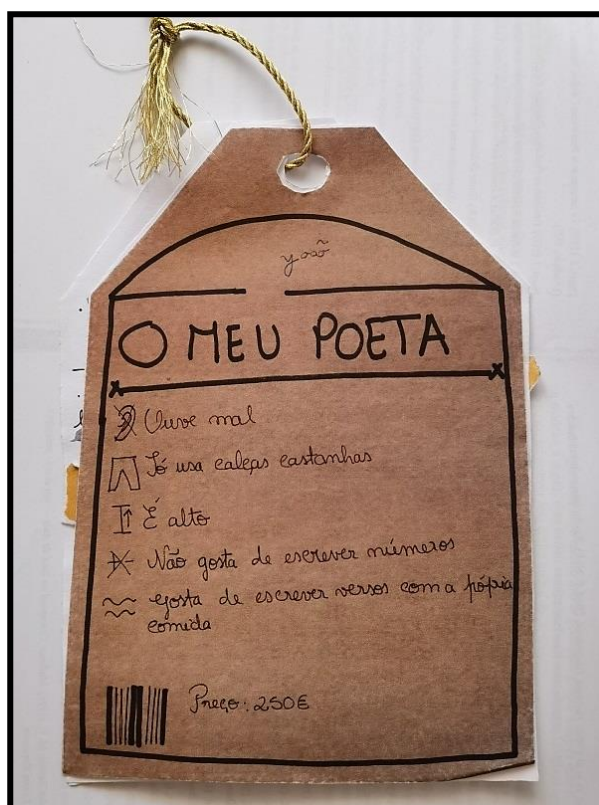 yoão
O MEU POETA
Ouve mal
Só usa calças castanhas
É alto
Não gosta de escrever números
gosta de escrever versos com a própria
comida
Preço: 250€